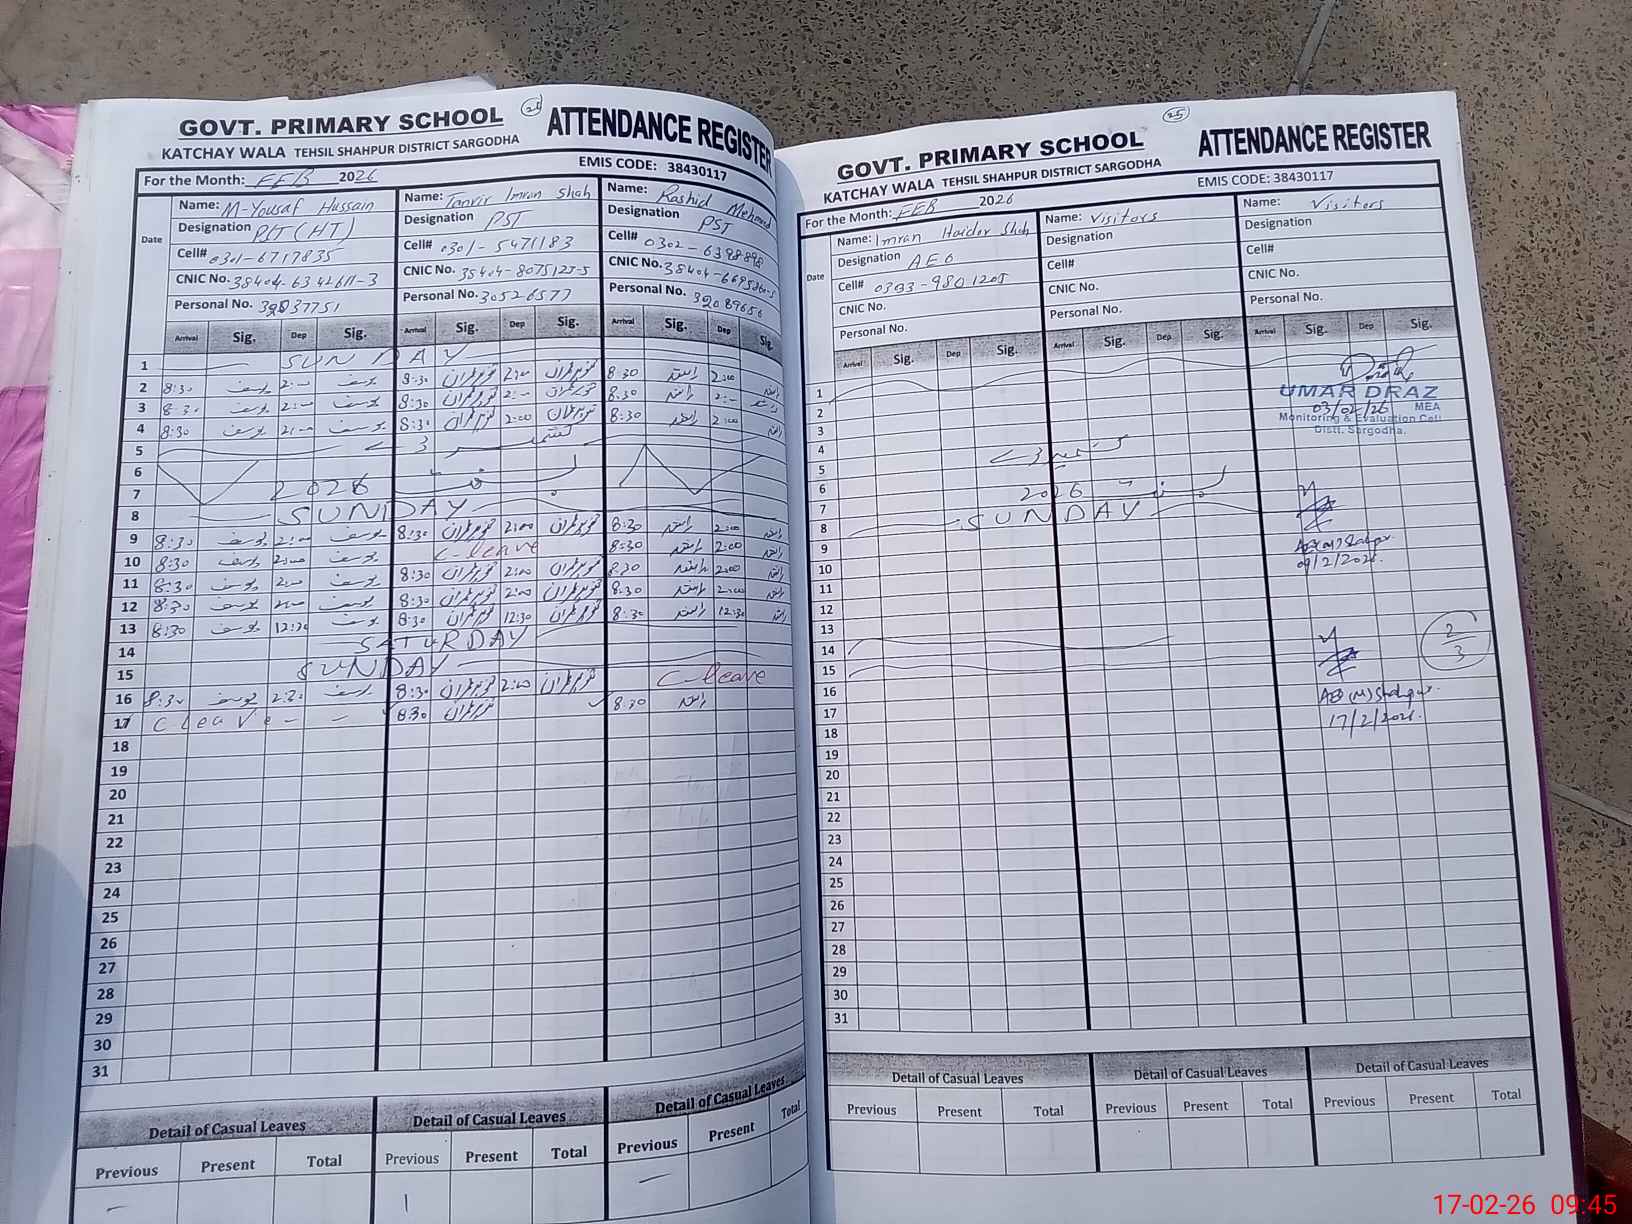 GOVT. PRIMARY SCHOOL 24 ATTENDANCE REGISTER
KATCHAY WALA TEHSIL SHAHPUR DISTRICT SARGODHA
EMIS CODE: 38430117
For the Month: FEB 2026
Name: M-Yousaf Hussain
Designation PST (HT)
Cell# 0301-6717835
CNIC No.
Personal No.
Name: Tanvir Imran Shah
Designation PST
Cell# 0301-5471183
CNIC No. 38404-8075123-5
Personal No. 30526577
Name: Rashid Mehmood
Designation PST
Cell# 0302-
CNIC No.
Personal No.
Date
Arrival Sig. Dep Sig. Arrival Sig. Dep Sig. Arrival Sig. Dep Sig.
1 SUNDAY
2 8:30 یوسف 2:00 یوسف 8:30 تنویر عمران 2:00 تنویر عمران 8:30 راشد 2:00 راشد
3 8:30 یوسف 2:00 یوسف 8:30 تنویر عمران 2:00 تنویر عمران 8:30 راشد 2:00 راشد
4 8:30 یوسف 2:00 یوسف 8:30 تنویر عمران 2:00 تنویر عمران 8:30 راشد 2:00 راشد
5 کشمیر ڈے
6
7 2026 بسنت
8 SUNDAY
9 8:30 یوسف 2:00 یوسف 8:30 تنویر عمران 2:00 تنویر عمران 8:30 راشد 2:00 راشد
10 8:30 یوسف 2:00 یوسف C-leave 8:30 راشد 2:00 راشد
11 8:30 یوسف 2:00 یوسف 8:30 تنویر عمران 2:00 تنویر عمران 8:30 راشد 2:00 راشد
12 8:30 یوسف 2:00 یوسف 8:30 تنویر عمران 2:00 تنویر عمران 8:30 راشد 2:00 راشد
13 8:30 یوسف 12:30 یوسف 8:30 تنویر عمران 12:30 تنویر عمران 8:30 راشد 12:30 راشد
14 SATURDAY
15 SUNDAY
16 8:30 یوسف یوسف 8:30 تنویر عمران 2:00 تنویر عمران C-leave
17 C leave - - 8:30 تنویر عمران 8:30 راشد
18
19
20
21
22
23
24
25
26
27
28
29
30
31
Detail of Casual Leaves Detail of Casual Leaves Detail of Casual Leaves
Previous Present Total Previous Present Total Previous Present Total
- 1 -
GOVT. PRIMARY SCHOOL 25 ATTENDANCE REGISTER
KATCHAY WALA TEHSIL SHAHPUR DISTRICT SARGODHA
EMIS CODE: 38430117
For the Month: FEB 2026
Name: Imran Haider Shah
Designation AEO
Cell# 0333-9801205
CNIC No.
Personal No.
Name: Visitors
Designation
Cell#
CNIC No.
Personal No.
Name: Visitors
Designation
Cell#
CNIC No.
Personal No.
Date
Arrival Sig. Dep Sig. Arrival Sig. Dep Sig. Arrival Sig. Dep Sig.
1
2
UMAR DRAZ
3
03/02/26 MEA
Monitoring & Evaluation Cell
Distt. Sargodha.
4
5 کشمیر ڈے
6
7 2026 بسنت
8 SUNDAY
9
AEO(M) Shahpur.
09/2/2026.
10
11
12
13
14
2/3
15
16
AEO (M) Shahpur.
17
17/2/2026.
18
19
20
21
22
23
24
25
26
27
28
29
30
31
Detail of Casual Leaves Detail of Casual Leaves Detail of Casual Leaves
Previous Present Total Previous Present Total Previous Present Total
17-02-26 09:45